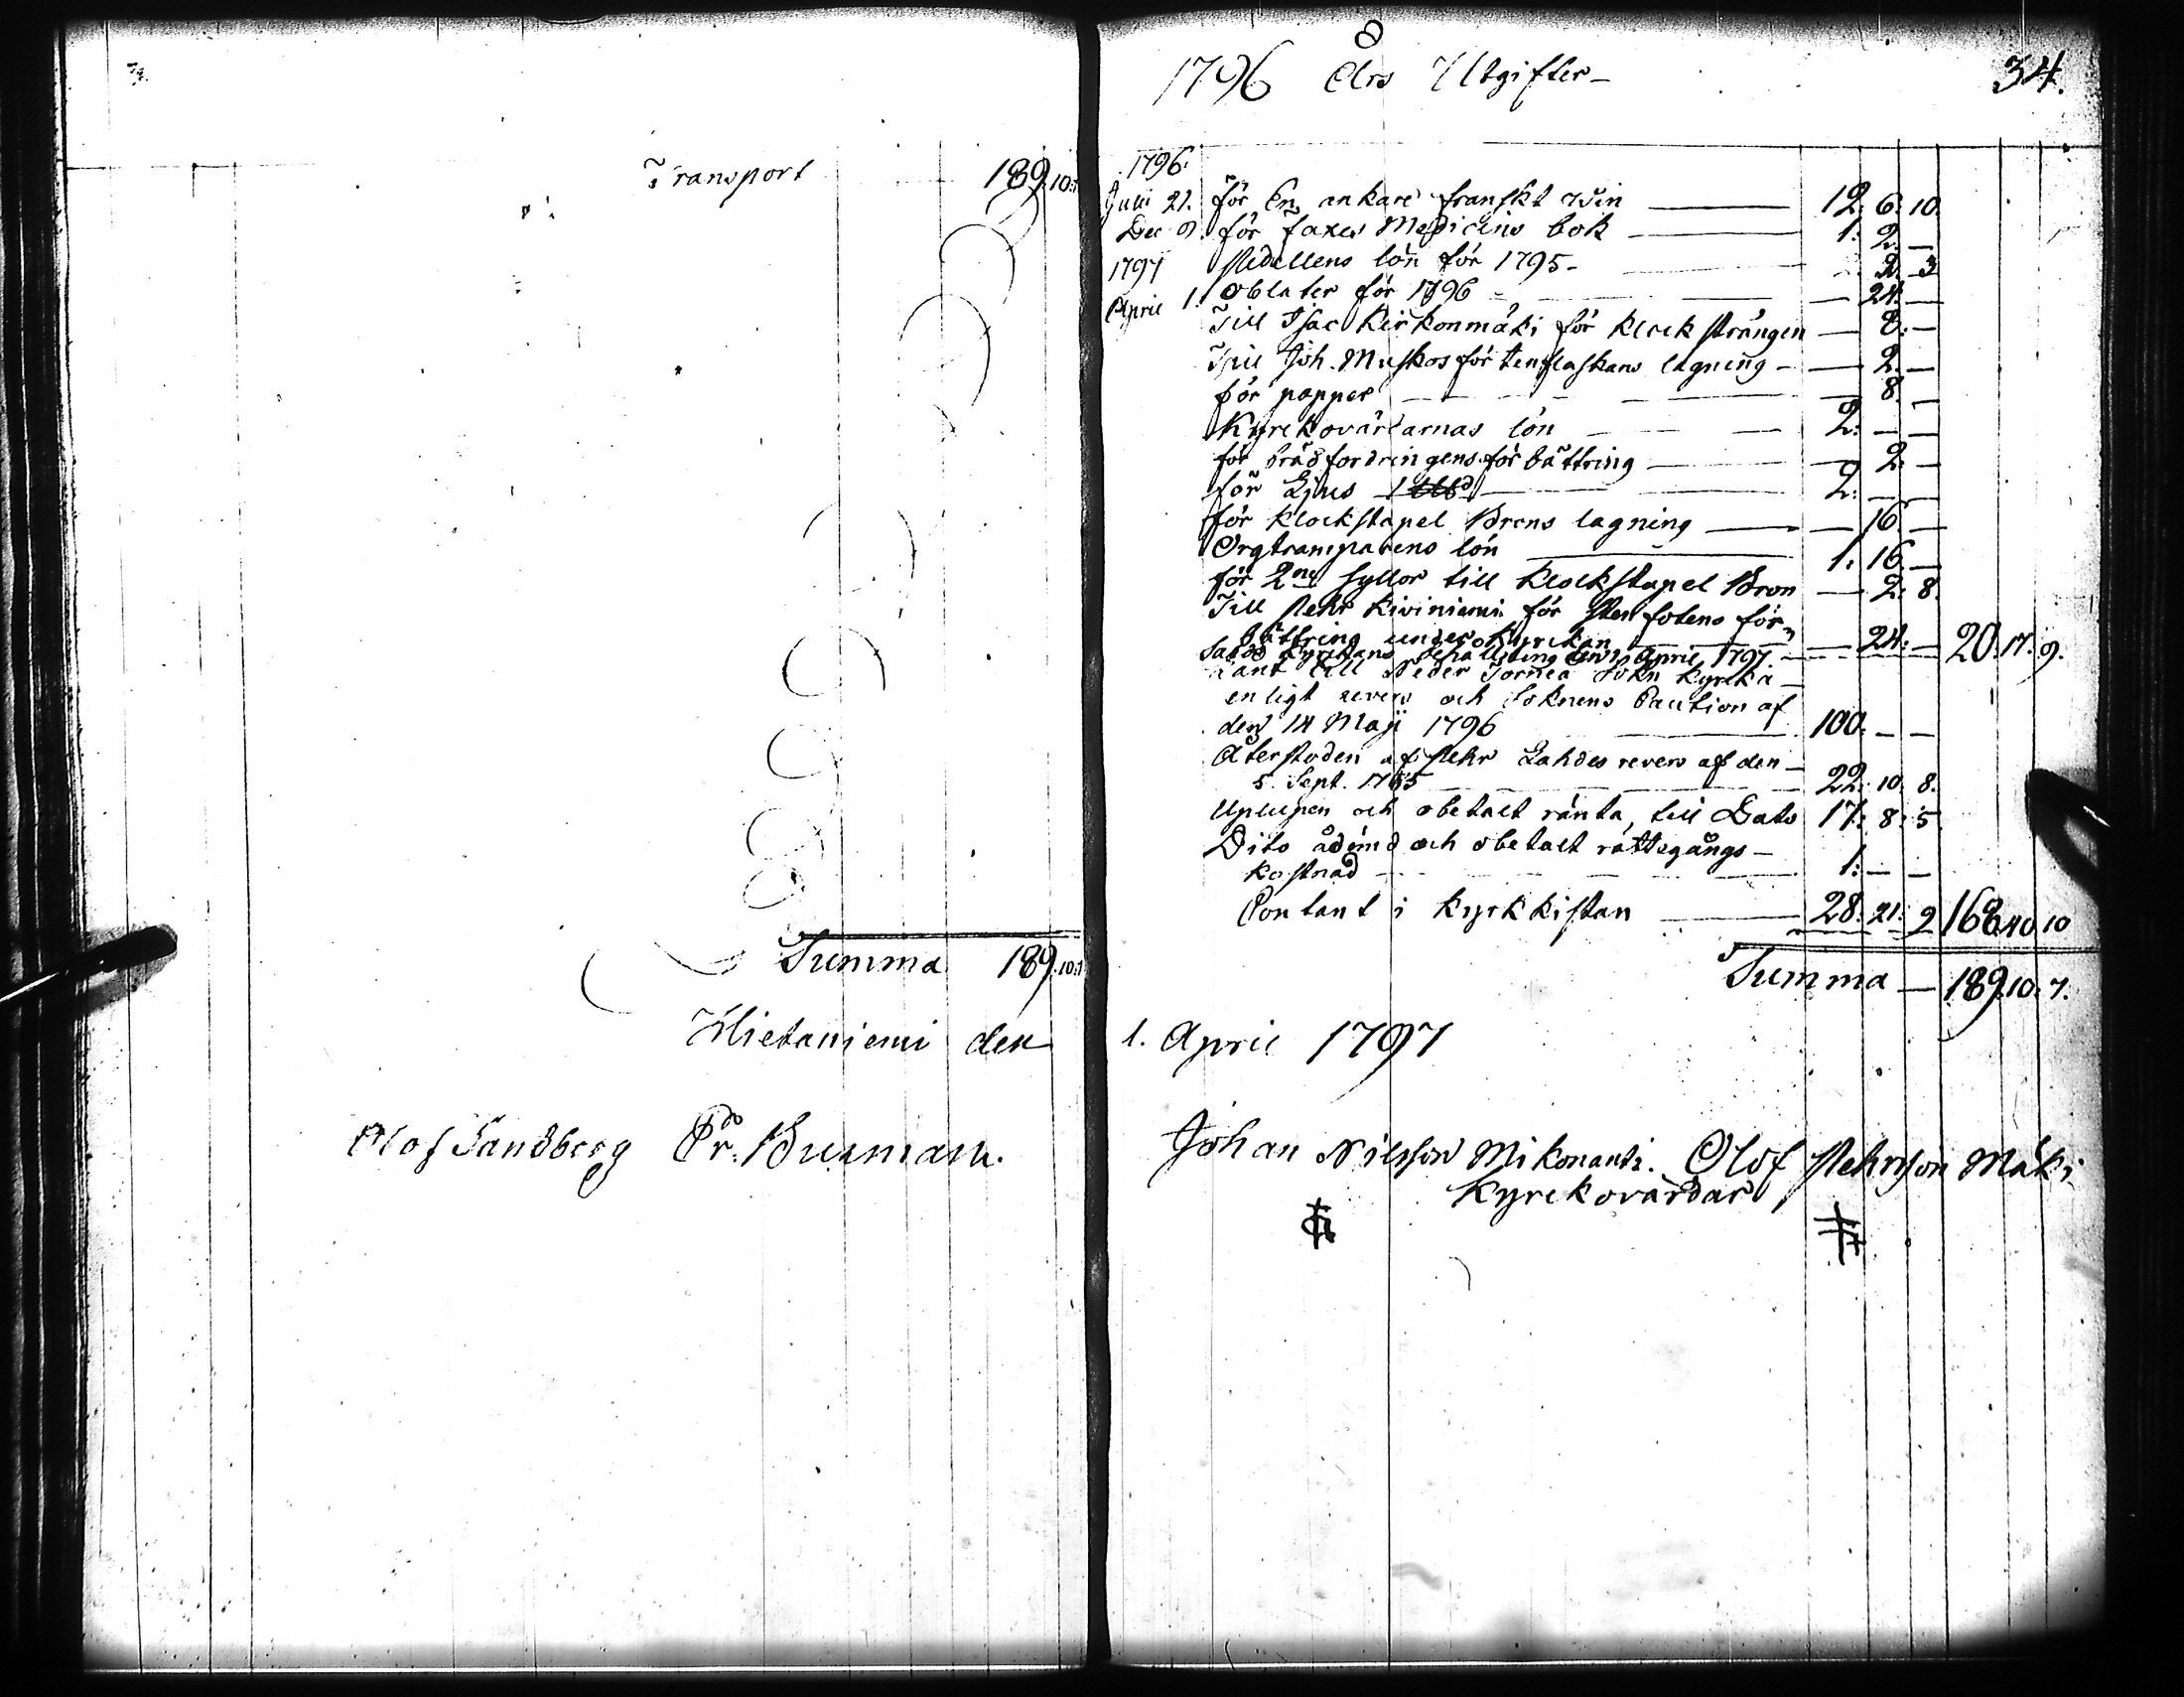 Transport 189.10:
Summa 189.10:
Hietaniemi den
Olof Sandberg Pr. Burman.
1796 Års Utgifter - 34.
1796.
Junii 21. för En ankare franskt Win 12. 6. 10.
Dec 9. för faxes Medicins bok 1. 2. —
1797 Pedellens lön för 1795 - 2. 3
April 1. Oblater för 1796 — 24. —
Till Isac Kirkonmäki för klocksträngen — 8. —
Till Joh. Muskos för tenflaskans lagning - — 2. —
för papper — 8. —
Kyrckovärdarnas lön 2. — —
för brädfordringens förbättring — 2. —
för Ljus 2. — —
för klockstapel Brons lagning — 16. —
Orgtramparens lön 1. 16. —
för 2ne Syllor till klockstapel Bron — 2. 8.
Till Pehr Kiviniemi för Stenfotens för-
bättring under Kyrckan — 24. — 20. 17. 9.
Saldo Kyrckans Behållning den 1 April 1797.
Lånt till Neder Torneå Sokn Kyrcka -
enligt revers och Soknens Caution af
den 14 Maji 1796 100. — —
Återstoden af Pehr Lahdes revers af den -
5. Sept. 1765 22. 10. 8.
Uplupen och obetalt ränta, till Dato 17. 8. 5.
Dito ådömd och obetalt rättegångs -
kostnad 1. — —
Contant i Kyrkkistan 28. 21. 9 168.40.10
Summa — 189.10.7.
1. April 1797
Johan Nilsson Mikonanti. Olof Pehrsson Mäki
Kyrckovärdar